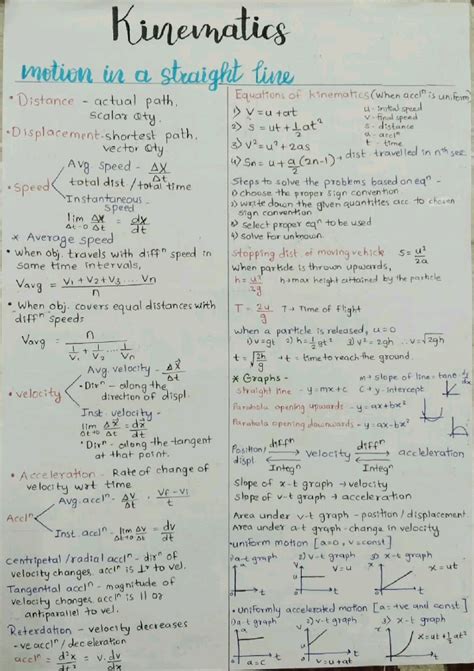 Kinematics
motion in a straight line
• Distance - actual path,
scalar Qty.
• Displacement - shortest path,
vector Qty
• Speed
Avg speed - ΔX/Δt
total dist / total time
Instantaneous Speed
lim Δt→0 ΔX/Δt = dx/dt
* Average speed
• when obj. travels with diffⁿ speed in
same time intervals,
Vavg = (V₁ + V₂ + V₃ .... Vn)/n
• When obj. covers equal distances with
diffⁿ speeds
Vavg = n/(1/V₁ + 1/V₂ ... 1/Vn)
• velocity
Avg. velocity - Δx⃗/Δt
• Dirⁿ - along the
direction of displ.
Inst. velocity -
lim Δt→0 Δx⃗/Δt = dx⃗/dt
• Dirⁿ - along the tangent
at that point.
• Acceleration - Rate of change of
velocity wrt time
Acclⁿ
Avg. acclⁿ - ΔV/Δt , (Vf - Vi)/t
Inst. acclⁿ - lim Δt→0 ΔV/Δt = dv/dt
centripetal / radial acclⁿ - dirⁿ of
velocity changes, acclⁿ is ⊥r to vel.
Tangential acclⁿ - magnitude of
velocity changes, acclⁿ is || or
antiparallel to vel.
Reterdation - velocity decreases
- ve acclⁿ / deceleration
acclⁿ = d²x/dt² = v.dv/dx
Equations of kinematics (When acclⁿ is uniform)
1) V = u + at
u - initial speed
v - final speed
2) S = ut + 1/2 at²
s - distance
a - acclⁿ
3) V² = u² + 2as
t - time
4) Sn = u + a/2 (2n-1) → dist travelled in nth sec.
Steps to solve the problems based on eqⁿ -
1) choose the proper sign convention
2) write down the given quantities acc. to chosen
sign convention
3) select proper eqⁿ to be used
4) solve for unknown.
Stopping dist. of moving vehicle S = u²/2a
When particle is thrown upwards,
h = u²/2g h → max height attained by the particle
T = 2u/g T → Time of flight
when a particle is released, u = 0
1) v = gt 2) h = 1/2 gt² 3) v² = 2gh ∴ v = √2gh
t = √(2h/g) t → time to reach the ground.
* Graphs - m → slope of line = tanθ = dy/dx
straight line - y = mx + c C → y-intercept
Parabola opening upwards - y = ax + bx²
Parabola opening downwards - y = ax - bx²
Position/ displ diffⁿ velocity diffⁿ acceleration
Integⁿ Integⁿ
Slope of x-t graph → velocity
slope of v-t graph → acceleration
Area under v-t graph - position / displacement.
Area under a-t graph - change in velocity
• uniform motion [a = 0, v = const]
1) a-t graph 2) v-t graph 3) x-t graph
a t v u v = u t x x = ut t
• uniformly accelerated motion [a = +ve and const]
1) a-t graph 2) v-t graph 3) x-t graph
a a = c t v u v = u + at t x x = ut + 1/2 at² t